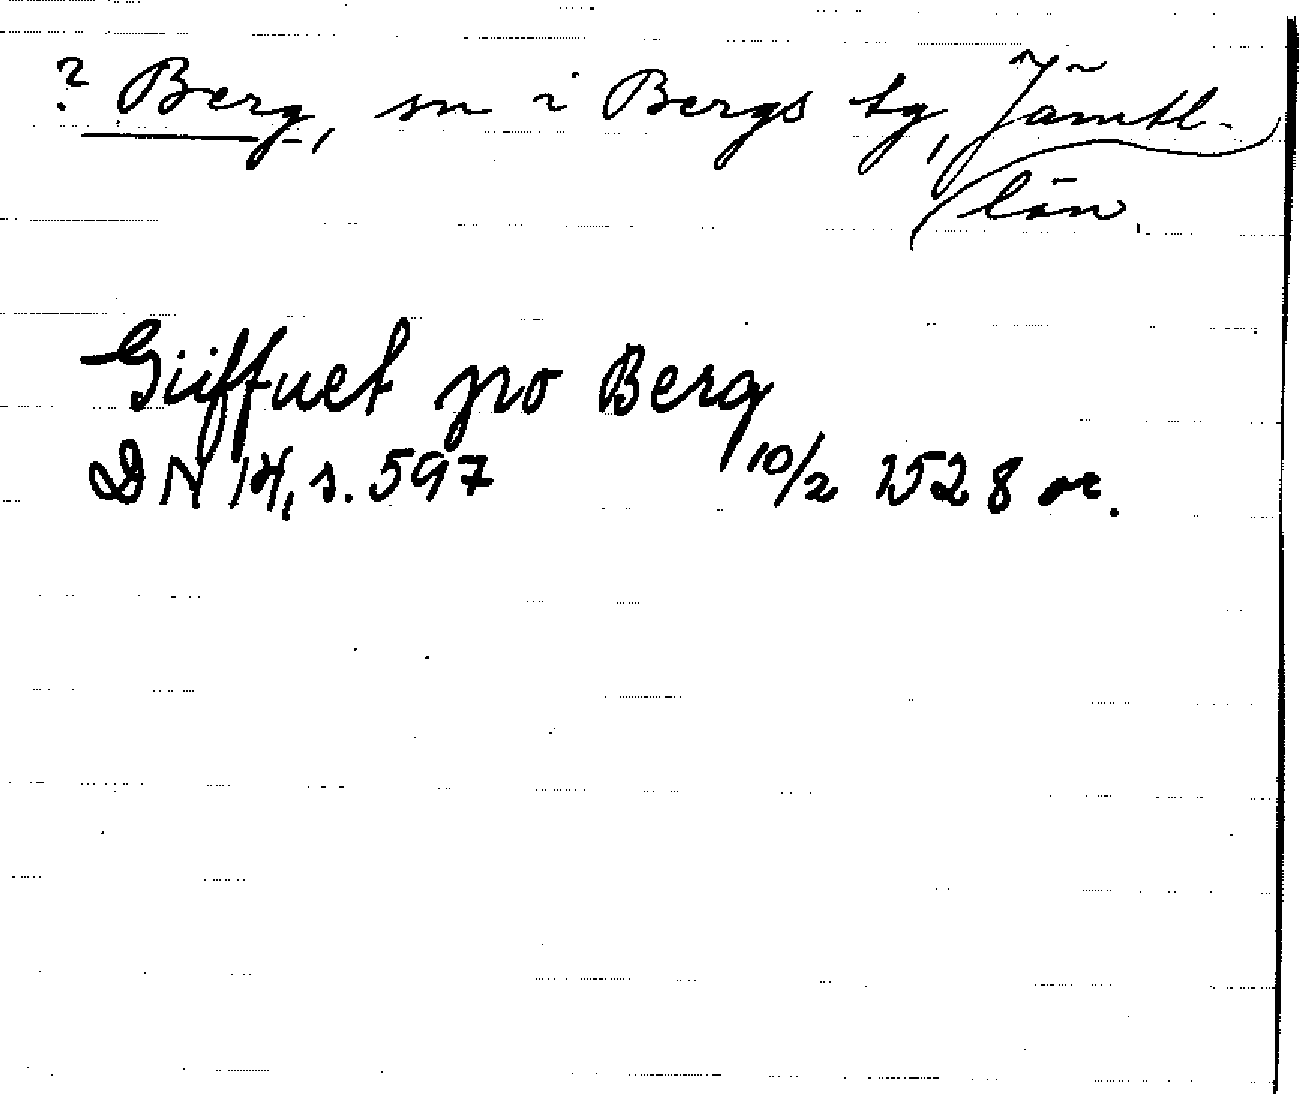 ? Berg, sn i Bergs tg, Jämtl.
län.
Giiffuet pro Berg
DN 14, s. 597 10/2 1528 or.